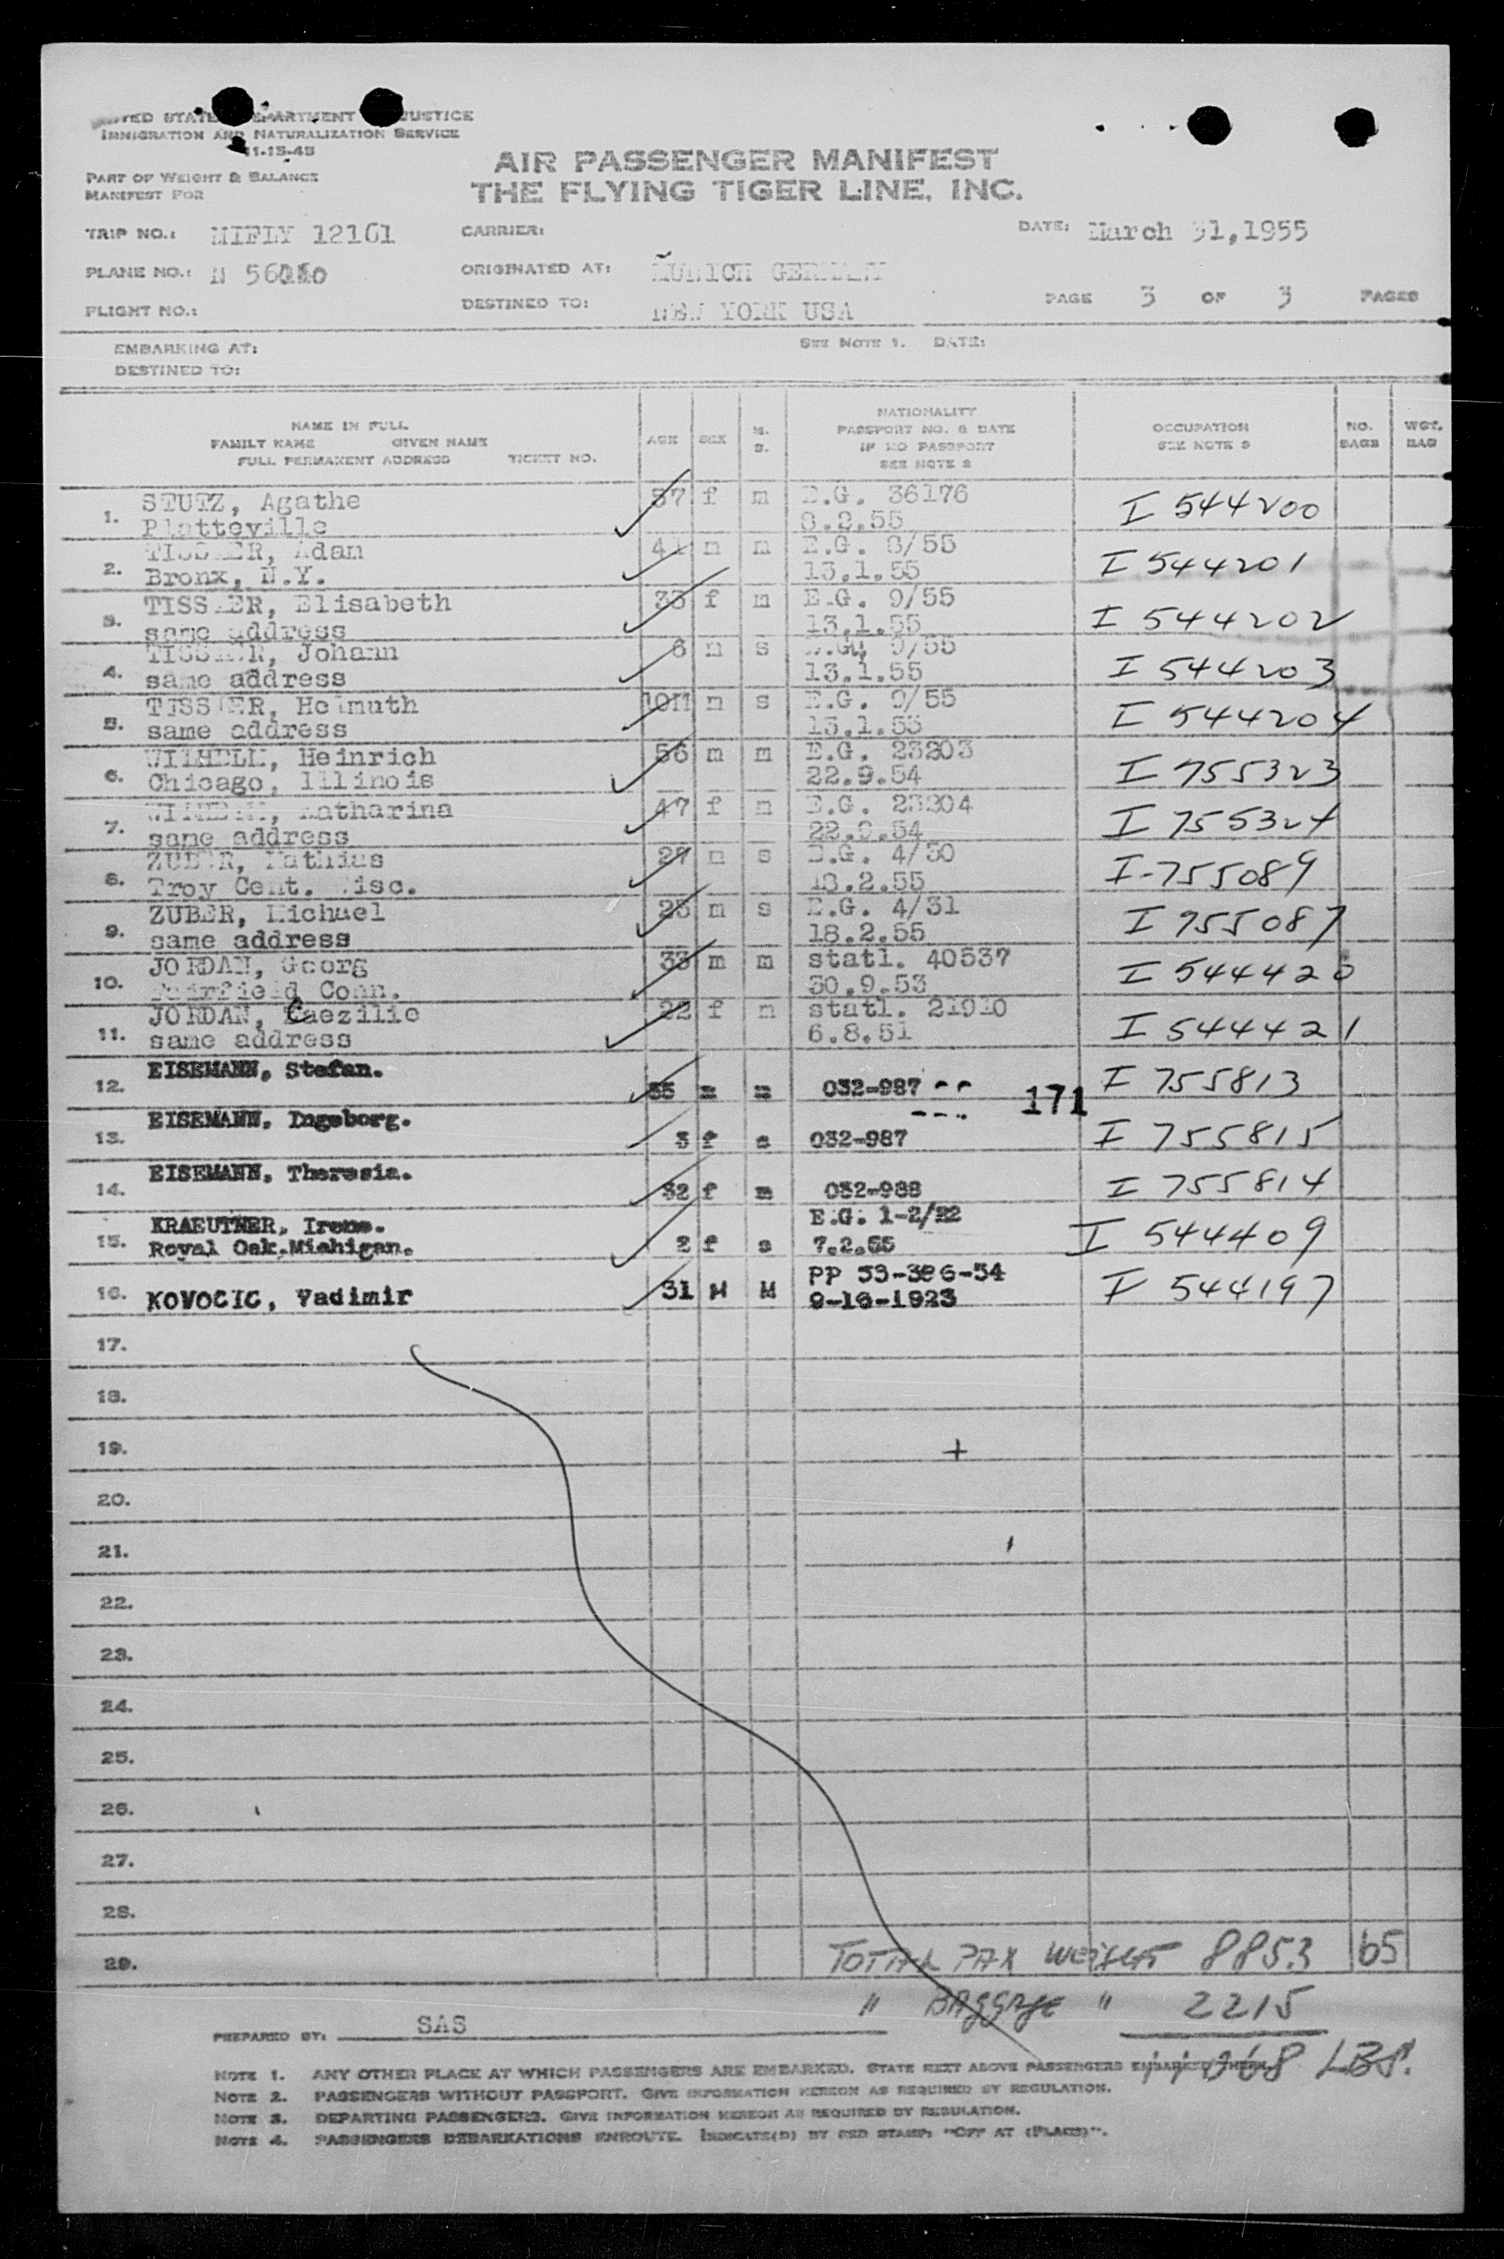 UNITED STATES DEPARTMENT OF JUSTICE
IMMIGRATION AND NATURALIZATION SERVICE
11-15-45
PART OF WEIGHT & BALANCE
MANIFEST FOR
AIR PASSENGER MANIFEST
THE FLYING TIGER LINE, INC.
TRIP NO.: MIFLY 12161 CARRIER: DATE: March 31,1955
PLANE NO.: N ORIGINATED AT: MUNICH GERMANY
FLIGHT NO.: DESTINED TO: NEW YORK USA PAGE 3 OF 3 PAGES
EMBARKING AT: SEE NOTE 1. DATE:
DESTINED TO:
NAME IN FULL
FAMILY NAME GIVEN NAME
FULL PERMANENT ADDRESS TICKET NO.
AGE SEX M. S.
NATIONALITY
PASSPORT NO. & DATE
IF NO PASSPORT
SEE NOTE 2
OCCUPATION
SEE NOTE 3
NO. BAGS
WGT. BAG
1. STUTZ, Agathe 57 f m E.G. 36176 I 544200
Platteville 8.2.55
2. TISSLER, Adam 41 m m E.G. 8/55 I 544201
Bronx, N.Y. 13.1.55
3. TISSLER, Elisabeth 33 f m E.G. 9/55 I 544202
same address 13.1.55
4. TISSLER, Johann 6 m s E.G. 9/55 I 544203
same address 13.1.55
5. TISSLER, Helmuth 10M m s E.G. 9/55 I 544204
same address 13.1.55
6. WILHELM, Heinrich 56 m m E.G. 23203 I 755323
Chicago, Illinois 22.9.54
7. WILHELM, Katharina 47 f m E.G. 23204 I 755324
same address 22.9.54
8. ZUBER, Mathias 27 m s E.G. 4/30 I-755089
Troy Cent. Wisc. 18.2.55
9. ZUBER, Michael 23 m s E.G. 4/31 I 755087
same address 18.2.55
10. JORDAN, Georg 33 m m statl. 40537 I 544420
Fairfield Conn. 30.9.53
11. JORDAN, Caezilie 22 f m statl. 21910 I 544421
same address 6.8.51
12. EISEMANN, Stefan. 35 m m 032-987 171 I 755813
13. EISEMANN, Ingeborg. 3 f s 032-987 I 755815
14. EISEMANN, Theresia. 32 f m 032-988 I 755814
15. KRAEUTNER, Irene. E.G. 1-2/22 I 544409
Royal Oak.Michigan. 2 f s 7.2.55
16. KOVOCIC, Vadimir 31 M M PP 53-386-54 I 544197
9-16-1923
17.
18.
19.
20.
21.
22.
23.
24.
25.
26.
27.
28.
29. TOTAL PAX WEIGHT 8853 65
" BAGGAGE " 2215
PREPARED BY: SAS
11068 LBS.
NOTE 1. ANY OTHER PLACE AT WHICH PASSENGERS ARE EMBARKED. STATE NEXT ABOVE PASSENGERS EMBARKED THERE.
NOTE 2. PASSENGERS WITHOUT PASSPORT. GIVE INFORMATION HEREON AS REQUIRED BY REGULATION.
NOTE 3. DEPARTING PASSENGERS. GIVE INFORMATION HEREON AS REQUIRED BY REGULATION.
NOTE 4. PASSENGERS DEBARKATIONS ENROUTE. INDICATE(D) BY RED STAMP: "OFF AT (PLACE)".